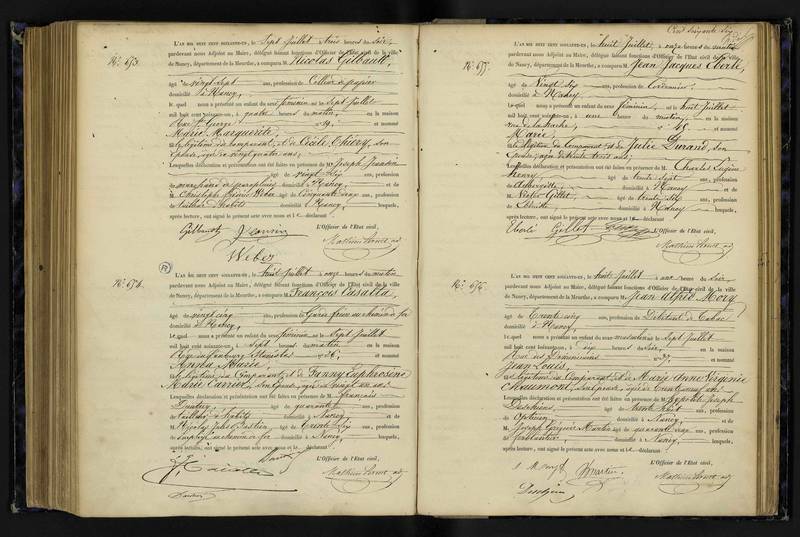 N.º 673.
L'AN MIL HUIT CENT SOIXANTE-UN, le Sept Juillet trois heures du Soir,
pardevant nous Adjoint au Maire, délégué faisant fonctions d'Officier de l'Etat civil de la ville
de Nancy, département de la Meurthe, a comparu M. Nicolas Gilbault,
âgé de vingt Sept ans, profession de Colleur de papier
domicilié à Nancy,
le quel nous a présenté un enfant du sexe féminin né le Sept Juillet
mil huit cent soixante-un, à quatre heures du matin, en la maison
Rue St. George nº 19, et nommé
Marie Marguerite,
fille légitime du Comparant, & de Cécile Thiéry, son
Epouse, âgée de vingt quatre ans,
Lesquelles déclaration et présentation ont été faites en présence de M. Joseph Jeansin
âgé de vingt Six ans, profession
de marchand de parapluies domicilié à Nancy, et de
M. Christophe Weber âgé de Cinquante ans, profession
de tailleur d'habits domicilié à Nancy, lesquels,
après lecture, ont signé le présent acte avec nous et le déclarant
L'Officier de l'Etat civil,
Gilbault Jeansin
Weber
N.º 674.
L'AN MIL HUIT CENT SOIXANTE-UN, le huit Juillet à onze heures du matin
pardevant nous Adjoint au Maire, délégué faisant fonctions d'Officier de l'Etat civil de la ville
de Nancy, département de la Meurthe, a comparu M. François Casalta,
âgé de vingt cinq ans, profession de Garde frein au chemin de fer
domicilié à Nancy,
le quel nous a présenté un enfant du sexe féminin né le Sept Juillet
mil huit cent soixante-un, à Sept heures du matin en la maison
Rue du faubourg Stanislas nº 26, et nommé
Anna Marie,
fille légitime du Comparant, & de Fanny Euphrosine
Marie Carrier, son Epouse, âgée de vingt un ans
Lesquelles déclaration et présentation ont été faites en présence de M. français
âgé de quarante ans, profession
de tailleur d'habits domicilié à Nancy et de
M. Nicolas âgé de trente Six ans, profession
d'employé au chemin de fer domicilié à Nancy, lesquels,
après lecture, ont signé le présent acte avec nous et le déclarant
L'Officier de l'Etat civil,
N.º 675.
L'AN MIL HUIT CENT SOIXANTE-UN, le huit Juillet, à onze heures du matin
pardevant nous Adjoint au Maire, délégué faisant fonctions d'Officier de l'Etat civil de la ville
de Nancy, département de la Meurthe, a comparu M. Jean Jacques Eberlé,
âgé de Vingt Six ans, profession de Cordonnier,
domicilié à Nancy,
le quel nous a présenté un enfant du sexe féminin, né le huit Juillet
mil huit cent soixante-un, à une heure du matin, en la maison
rue de la hache, nº 45, et nommé
Marie,
fille légitime du Comparant & de Julie Durand, son
Epouse, âgée de trente trois ans,
Lesquelles déclaration et présentation ont été faites en présence de M. Charles
henry âgé de trente Sept ans, profession
domicilié à Nancy et de
M. Victor Gillet, âgé de trente Six ans, profession
d'Ebéniste domicilié à Nancy, lesquels,
après lecture, ont signé le présent acte avec nous et le déclarant
L'Officier de l'Etat civil,
Eberlé Gillet
N.º 676.
L'AN MIL HUIT CENT SOIXANTE-UN, le huit Juillet à une heure du Soir
pardevant nous Adjoint au Maire, délégué faisant fonctions d'Officier de l'Etat civil de la ville
de Nancy, département de la Meurthe, a comparu M. Jean Alfred Mory
âgé de Trente cinq ans, profession de Debitant de tabac
domicilié à Nancy,
le quel nous a présenté un enfant du sexe masculin né le Sept Juillet
mil huit cent soixante-un, à Six heures du Soir, en la maison
Rue des Dominicains nº 39, et nommé
Jean Louis,
fils légitime du Comparant, & de Marie Anne Virginie
Chaumont, son Epouse, âgée de trente un ans
Lesquelles déclaration et présentation ont été faites en présence de M. hypolite Joseph
âgé de trente huit ans, profession
d'Opticien, domicilié à Nancy, et de
M. Joseph Martin âgé de quarante ans, profession
domicilié à Nancy, lesquels,
après lecture, ont signé le présent acte avec nous et le déclarant
L'Officier de l'Etat civil,
Martin